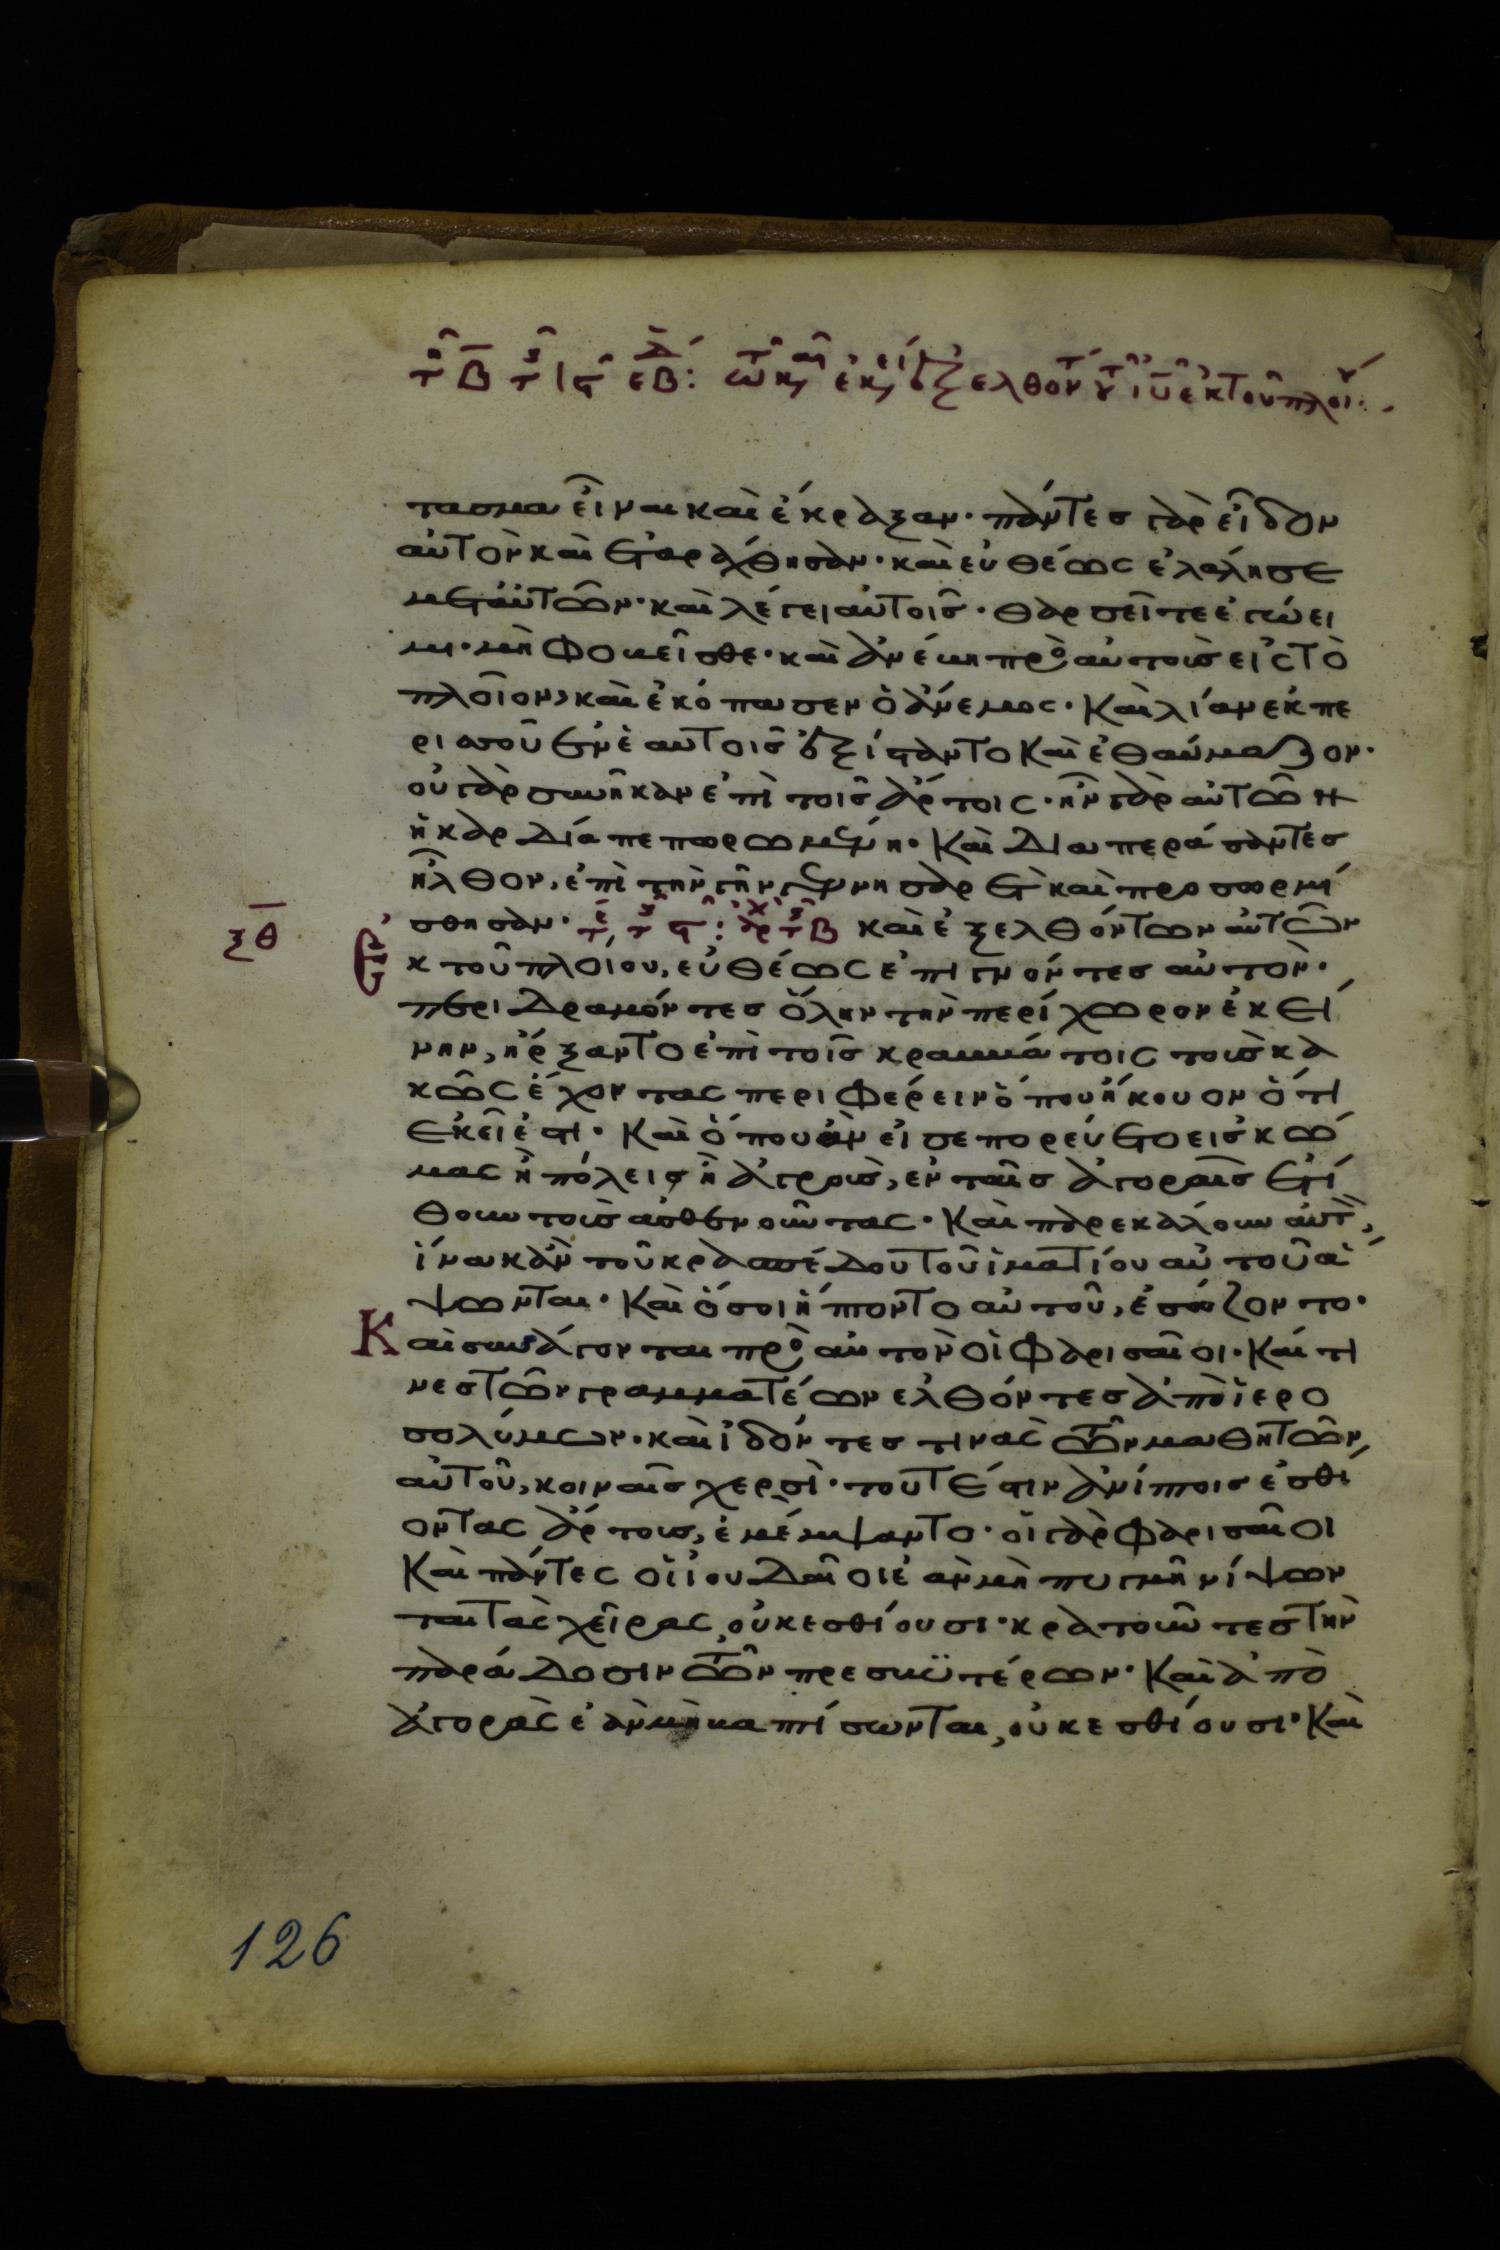 τασμα εἶναι καὶ ἔκραξαν· πάντες γὰρ εἶδον
αὐτὸν καὶ ἐταράχθησαν· καὶ εὐθέως ἐλάλησε
μετ αὐτῶν· καὶ λέγει αὐτοῖς· θαρσεῖτε ἐγώ ει
μι· μὴ φοβεῖσθε· καὶ ἀνέβη πρὸς αὐτοὺς εἰς τὸ
πλοῖον, καὶ ἐκόπασεν ὁ ἄνεμος· Καὶ λίαν ἐκ πε
ρισσοῦ ἐν ἑαυτοῖς ἐξίσταντο Καὶ ἐθαύμαζον·
οὐ γὰρ συνῆκαν ἐπὶ τοῖς ἄρτοις· ἦν γὰρ αὐτῶν
ἡ καρδία πεπωρωμένη· Καὶ Διαπεράσαντες
ἦλθον, ἐπὶ τὴν γῆν γεννησαρὲτ καὶ προσωρμί
σθησαν· καὶ ἐξελθόντων αὐτῶν
ξθ
Ἐκ τοῦ πλοίου, εὐθέως ἐπιγνόντες αὐτὸν·
περιδραμόντες ὅλην τὴν περίχωρον ἐκεί
νην, ἤρξαντο ἐπὶ τοῖς κραββάτοις τοὺς κα
κῶς ἔχοντας περιφέρειν ὅπου ἤκουον ὅτι
ἐκεῖ ἐστι· Καὶ ὅπου ἂν εἰσεπορεύετο εἰς κώ
μας ἢ πόλεις ἢ ἀγροὺς, ἐν ταῖς ἀγοραῖς ἐτί
θουν τοὺς ἀσθενοῦντας· Καὶ παρεκάλουν αὐτὸν,
ἵνα κἂν τοῦ κρασπέδου τοῦ ἱματίου αὐτοῦ ἅ
ψωνται· Καὶ ὅσοι ἥπτοντο αὐτοῦ, ἐσώζοντο·
Καὶ συνάγονται πρὸς αὐτὸν οἱ Φαρισαῖοι· Καί τι
νες τῶν γραμματέων ἐλθόντες ἀπὸ ἱερο
σολύμων· καὶ ἰδόντες τινὰς τῶν μαθητῶν
αὐτοῦ, κοιναῖς χερσὶ· τουτέστιν ἀνίπτοις ἐσθί
οντας ἄρτους, ἐμέμψαντο· οἱ γὰρ Φαρισαῖοι
Καὶ πάντες οἱ ἰουδαῖοι ἐὰν μὴ πυγμῆ νίψων
ται τὰς χεῖρας, οὐκ ἐσθίουσι· κρατοῦντες τὴν
παράδοσιν τῶν πρεσβυτέρων· Καὶ ἀπὸ
ἀγορᾶς ἐὰν μὴ βαπτίσωνται, οὐκ ἐσθίουσι· Καὶ
126